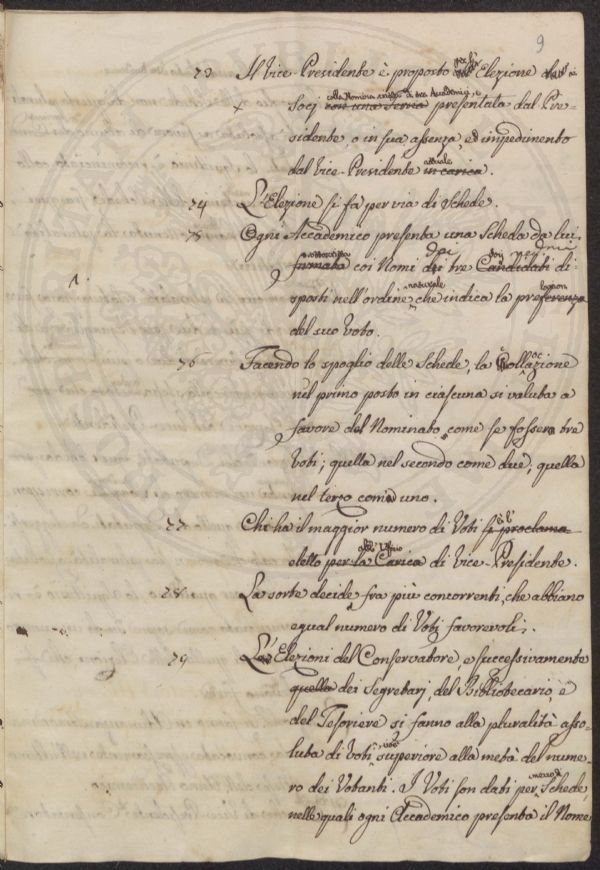 9
73 Il Vice-Presidente è proposto per la Elezione ai
colla Nomina di tre Accademici, e
Socj con una Terna presentata dal Pre-
sidente, o in sua assenza, ed impedimento
attuale
dal Vice-Presidente in carica.
74 L'Elezione si fa per via di Schede.
75 Ogni Accademico presenta una Scheda da lui
sottoscritta
firmata coi Nomi dei tre Candidati di-
naturale
sposti nell'ordine, che indica la preferenza
del suo Voto.
76 Facendo lo spoglio delle Schede, la Collazione
nel primo posto in ciascuna si valuta a
favore del Nominato, come se fossero tre
Voti; quella nel secondo come due, quella
nel terzo come uno.
77 Chi ha il maggior numero di Voti si proclama
all'Uffizio
eletto per la Carica di Vice-Presidente.
78 La sorte decide fra più concorrenti, che abbiano
egual numero di Voti favorevoli.
79 L'Elezioni del Conservatore, e successivamente
quella dei Segretarj, del Bibliotecario, e
del Tesoriere si fanno alla pluralità asso-
luta di Voti superiore alla metà del nume-
ro dei Votanti. I Voti son dati per Schede,
nelle quali ogni Accademico presenta il Nome